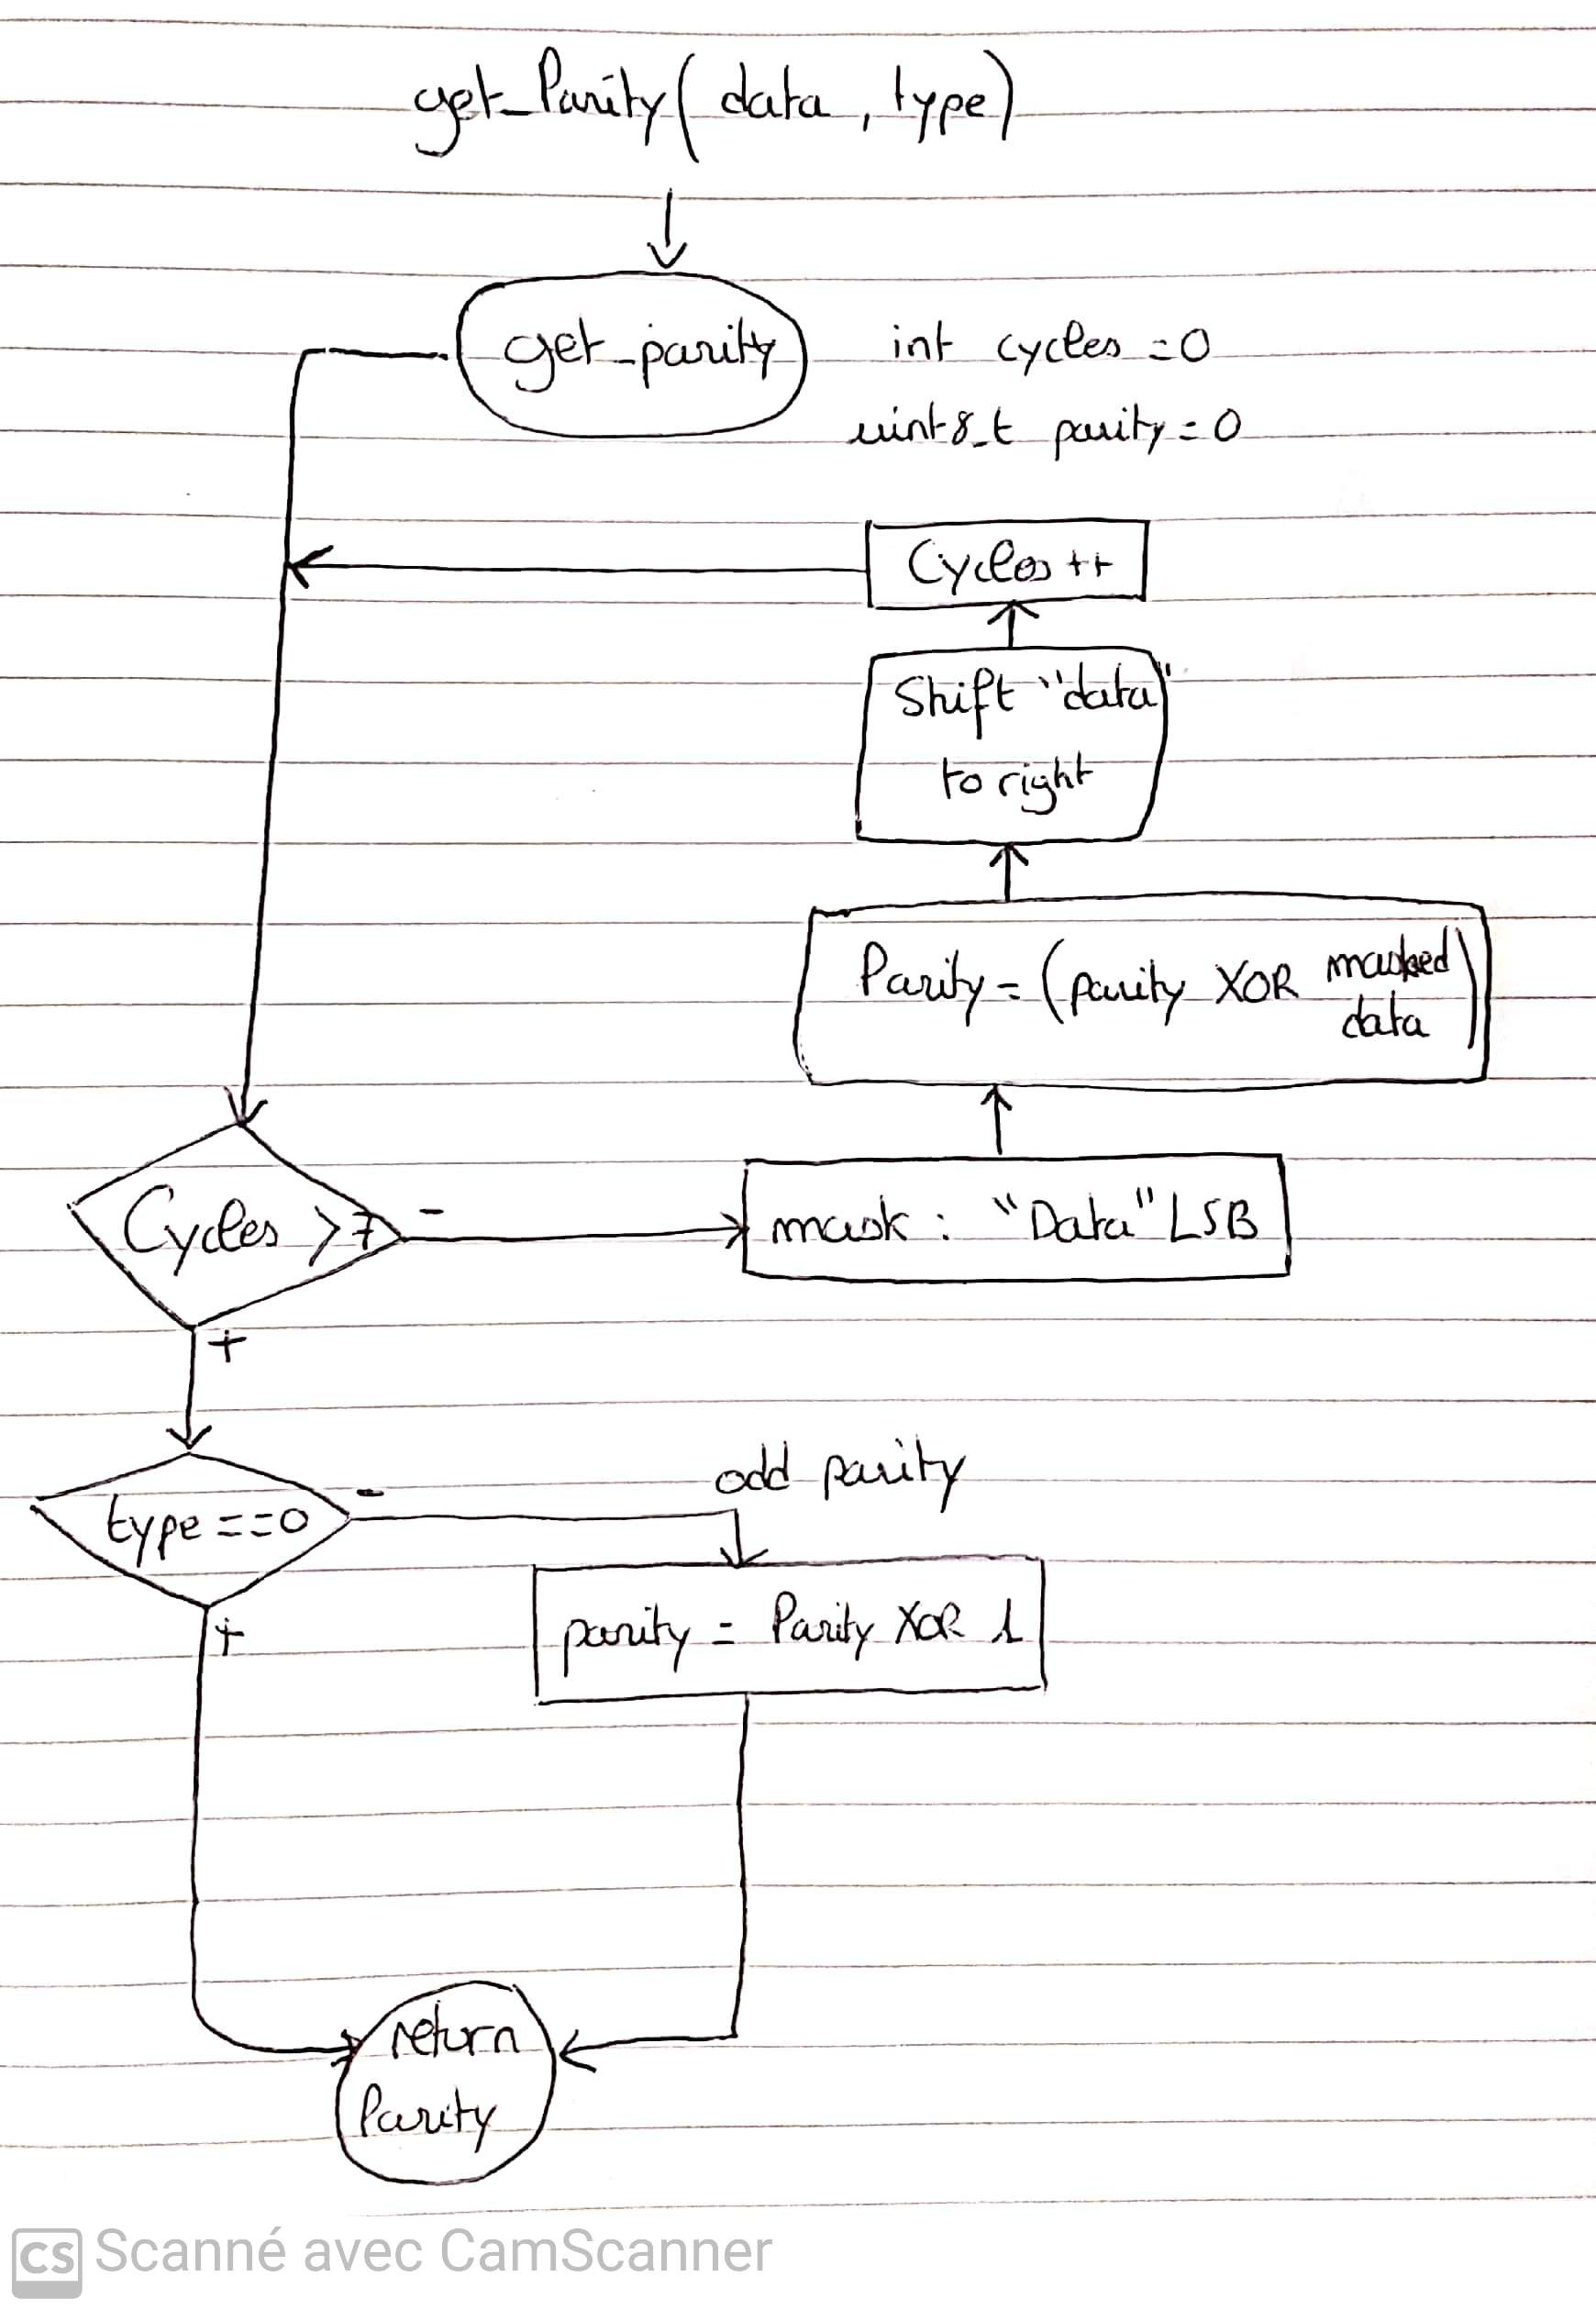 get_Parity( data , type)
get_parity
int cycles = 0
uint8_t parity = 0
Cycles ++
Shift "data"
to right
Parity = (parity XOR masked data)
Cycles > 7
-
mask : "Data" LSB
+
type == 0
-
odd parity
+
parity = Parity XOR 1
return
Parity
CS Scanné avec CamScanner